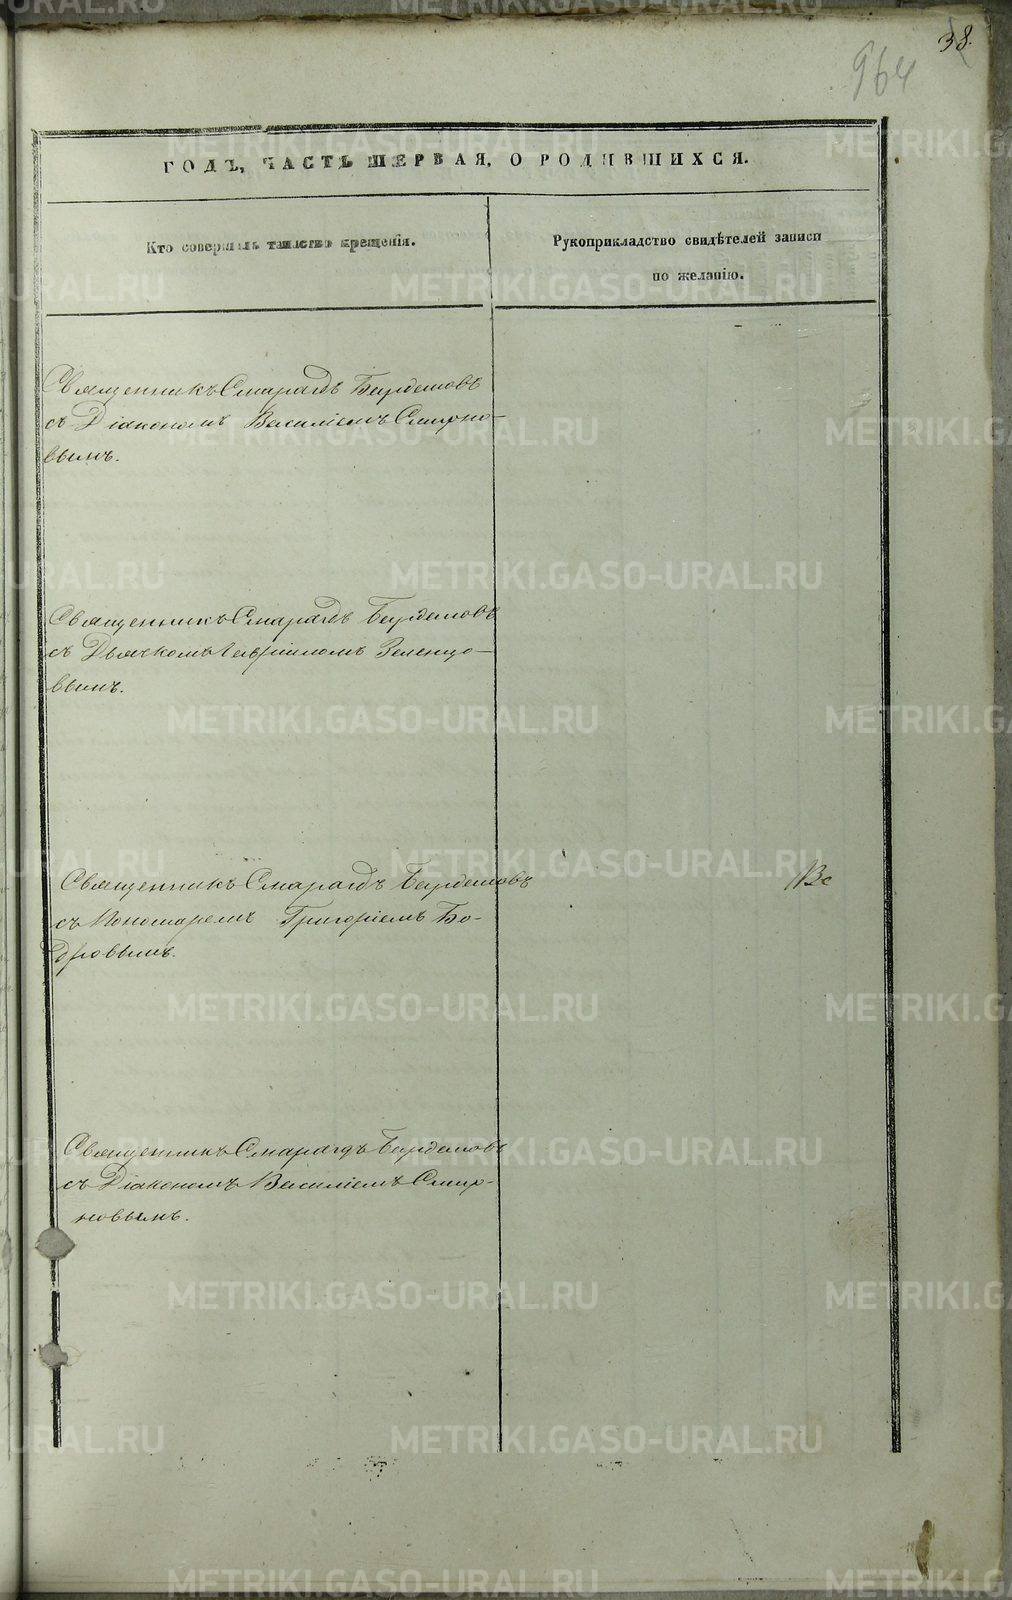 38.
964
ГОДЪ, ЧАСТЬ ПЕРВАЯ, О РОДИВШИХСЯ.
Кто совершалъ таинство крещенія.
Рукоприкладство свидѣтелей записи
по желанію.
Священникъ Смарагдъ Бирюковъ
съ Діакономъ Василіемъ Смирно-
вымъ.
Священникъ Смарагдъ
съ Дьячкомъ Гавріиломъ Зеленцо-
вымъ.
Священникъ Смарагдъ
съ Пономаремъ Григоріемъ Бо-
дровымъ.
Священникъ Смарагдъ
съ Діакономъ Василіемъ Смир-
новымъ.
METRIKI.GASO-URAL.RU